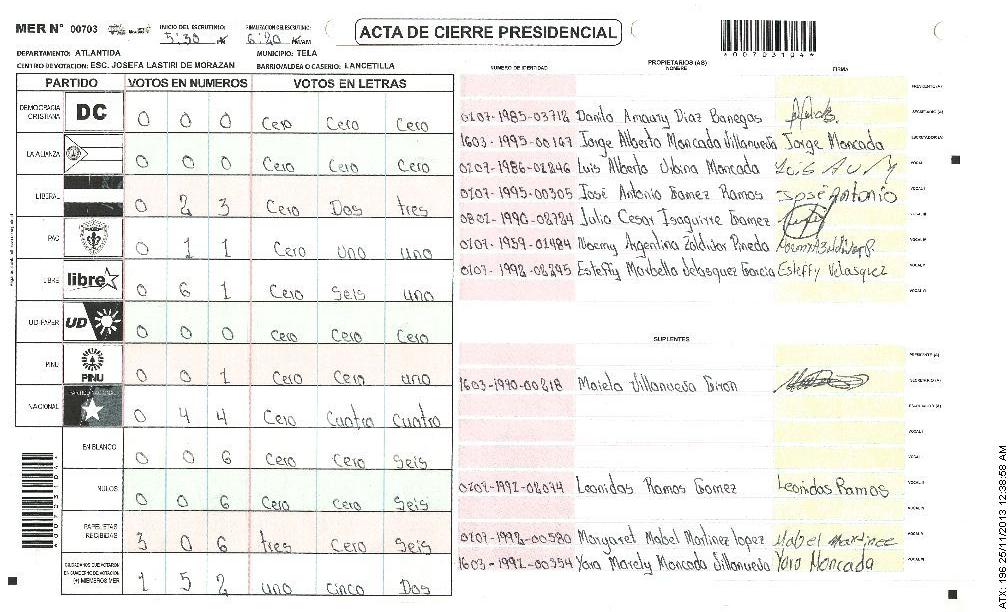 MER N° 00703 INICIO DEL ESCRUTINIO: 5:30 FINALIZACION DEL ESCRUTINIO: 6:20
ACTA DE CIERRE PRESIDENCIAL
*00703104*
DEPARTAMENTO: ATLANTIDA MUNICIPIO: TELA
CENTRO DE VOTACION: ESC. JOSEFA LASTIRI DE MORAZAN BARRIO/ALDEA O CASERIO: LANCETILLA
PARTIDO VOTOS EN NUMEROS VOTOS EN LETRAS
DEMOCRACIA CRISTIANA DC 0 0 0 Cero Cero Cero
LA ALIANZA 0 0 0 Cero Cero Cero
LIBERAL 0 2 3 Cero Dos tres
PAC 0 1 1 Cero uno uno
LIBRE libre 0 6 1 Cero Seis uno
UD-FAPER UD 0 0 0 Cero Cero Cero
PINU PINU 0 0 1 Cero Cero uno
NACIONAL 0 4 4 Cero Cuatro Cuatro
EN BLANCO 0 0 6 Cero Cero Seis
NULOS 0 0 6 Cero Cero Seis
PAPELETAS RECIBIDAS 3 0 6 tres Cero Seis
CIUDADANOS QUE VOTARON EN CUADERNO DE VOTACION (+) MIEMBROS MER 1 5 2 uno cinco Dos
PROPIETARIOS (AS)
NUMERO DE IDENTIDAD NOMBRE FIRMA
PRESIDENTE (A)
0107-1985-03718 Danilo Amaury Diaz Banegas SECRETARIO (A)
1603-1995-00167 Jorge Alberto Moncada Villanueva Jorge Moncada ESCRUTADOR (A)
0107-1986-02846 Luis Alberto Urbina Moncada Luis A U M VOCAL I
0107-1995-00305 José Antonio Gamez Ramos José Antonio VOCAL II
0801-1990-08784 Julio Cesar Isaguirre Gamez VOCAL III
0107-1959-01484 Noemy Argentina Zaldivar Pineda VOCAL IV
0107-1992-02895 Esteffy Marbella Velasquez Garcia Esteffy Velasquez VOCAL V
SUPLENTES
PRESIDENTE (A)
1603-1990-00218 Mariela Villanueva Giron SECRETARIO (A)
ESCRUTADOR (A)
VOCAL I
0107-1992-02074 Leonidas Ramos Gomez Leonidas Ramos
0107-1992-00580 Margaret Mabel Martinez Lopez Mabel Martinez
1603-1992-00354 Yara Marely Moncada Villanueva Yara Moncada
ATX: 196 25/11/2013 12:38:58 AM